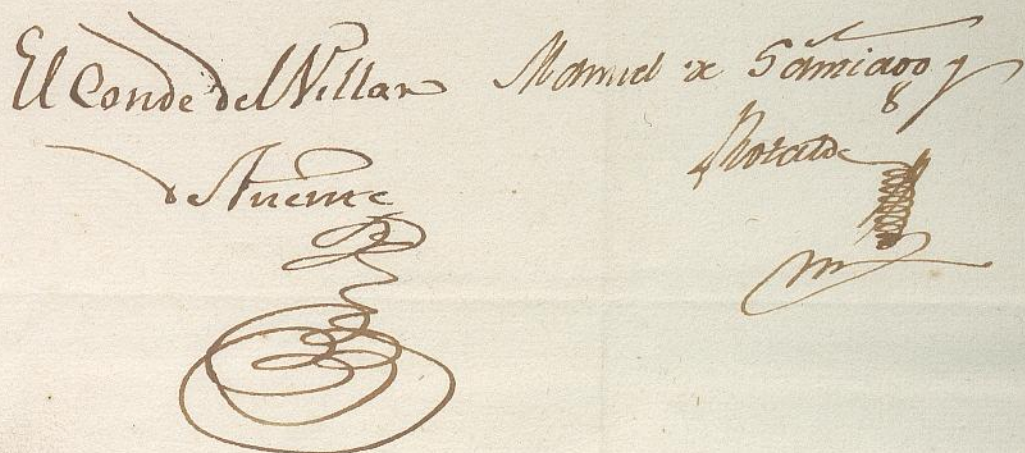 El Conde del Villar
de Fuente
Manuel de Santiago y
Rotalde